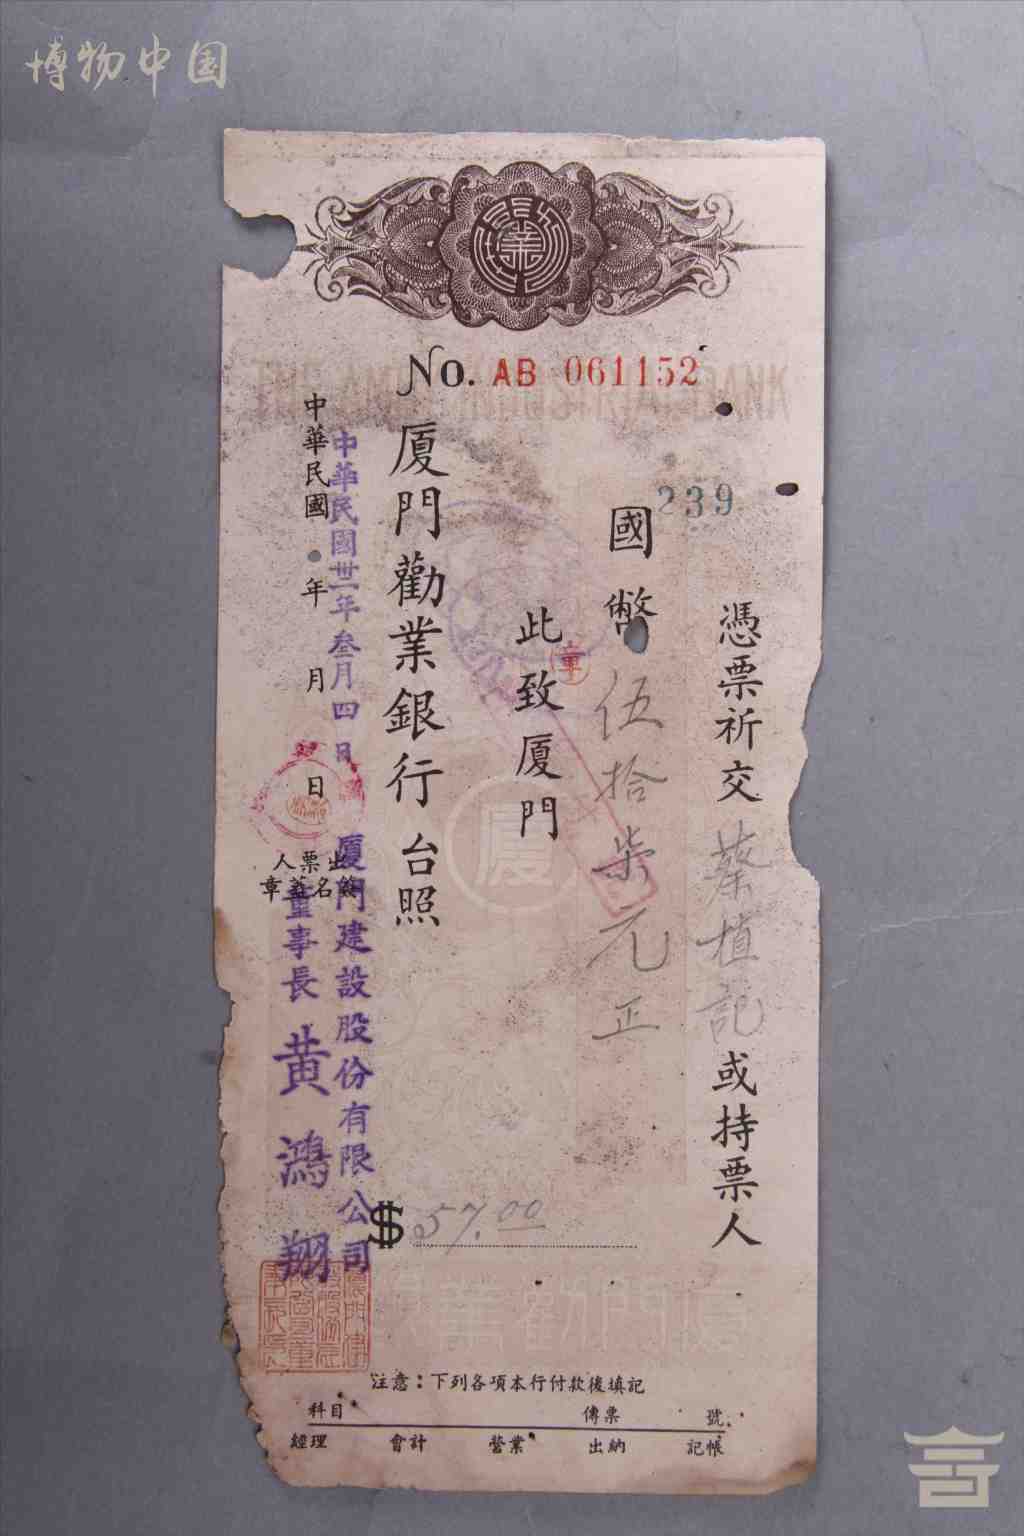 博物中国
No. AB 061152
239
憑票祈交蔡植記或持票人
國幣伍拾柒元正
此致廈門
廈門勸業銀行台照
$57.00
中華民國 年 月 日
中華民國卅二年叁月四日
出票人
簽名蓋章
廈門建設股份有限公司
董事長黄鴻翔
章
廈
廈門勸業
注意：下列各項本行付款後填記
科目 傳票 號
經理 會計 營業 出納 記帳